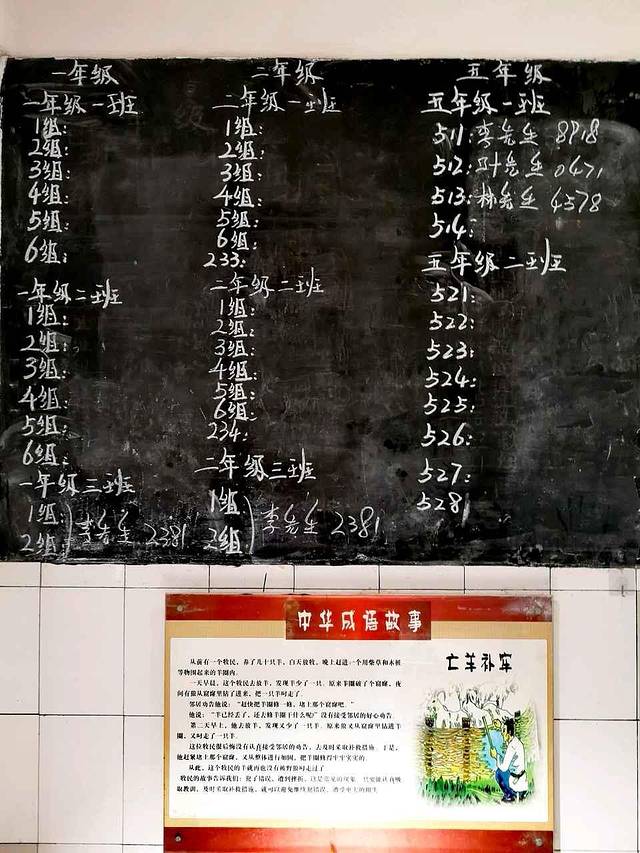 一年级
一年级一班
1组:
2组:
3组:
4组:
5组:
6组:
一年级二班
1组:
2组:
3组:
4组:
5组:
6组:
一年级三班
1组:
2组:
李先生 2381
二年级
二年级一班
1组:
2组:
3组:
4组:
5组:
6组:
233:
二年级二班
1组:
2组:
3组:
4组:
5组:
6组:
234:
二年级三班
1组
2组
李先生 2381
五年级
五年级一班
511:李先生 8918
512:叶先生 0471
513:林先生 4578
514:
五年级二班
521:
522:
523:
524:
525:
526:
527:
528
中华成语故事
亡羊补牢
从前有一个牧民,养了几十只羊,白天放牧,晚上赶进一个用柴草和木桩
等物围起来的羊圈内。
一天早晨,这个牧民去放羊,发现羊少了一只。原来羊圈破了个窟窿,夜
间有狼从窟窿里钻了进来,把一只羊叼走了。
邻居劝告他说:“赶快把羊圈修一修,堵上那个窟窿吧。”
他说:“羊已经丢了,还去修羊圈干什么呢?”没有接受邻居的好心劝告。
第二天早上,他去放羊,发现又少了一只羊。原来狼又从窟窿里钻进羊
圈,又叼走了一只羊。
这位牧民很后悔没有认真接受邻居的劝告,去及时采取补救措施。于是,
他赶紧堵上那个窟窿,又从整体进行加固,把羊圈修得牢牢实实的。
从此,这个牧民的羊就再也没有被野狼叼走过了。
牧民的故事告诉我们:犯了错误,遭到挫折,这是常见的现象。只要能认真吸
取教训,及时采取补救措施,就可以避免继续犯错误,遭受更大的损失。